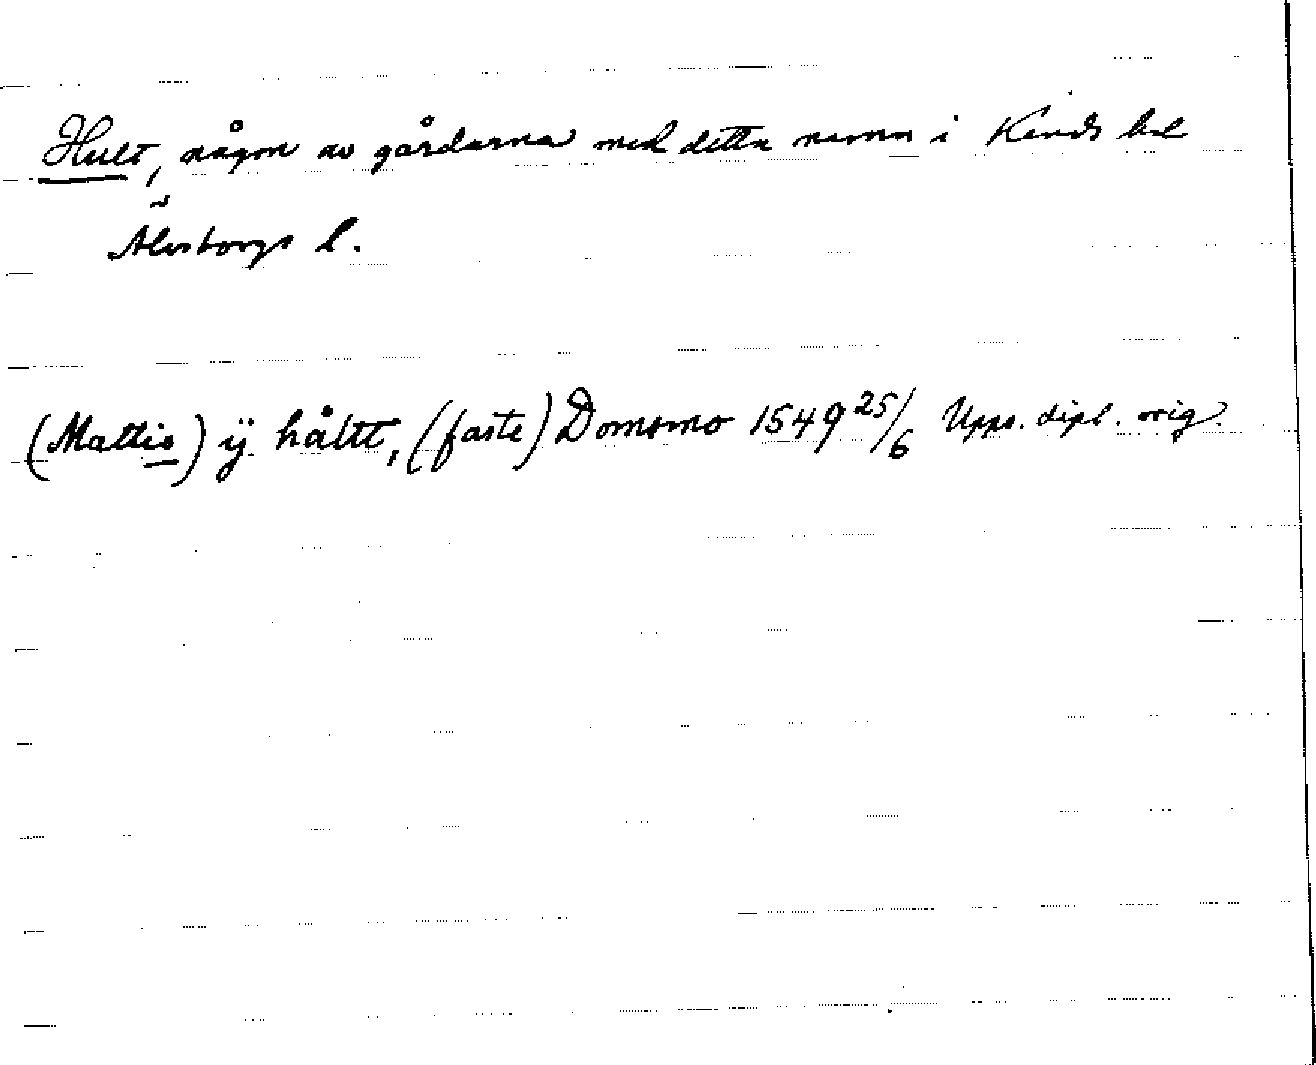 Hult, någon av gårdarna med detta namn i Kinds hd
Älvsborgs l.
(Mattis) ÿ håltt, (faste) Domomo 1549 25/6 Upps. dipl. orig.